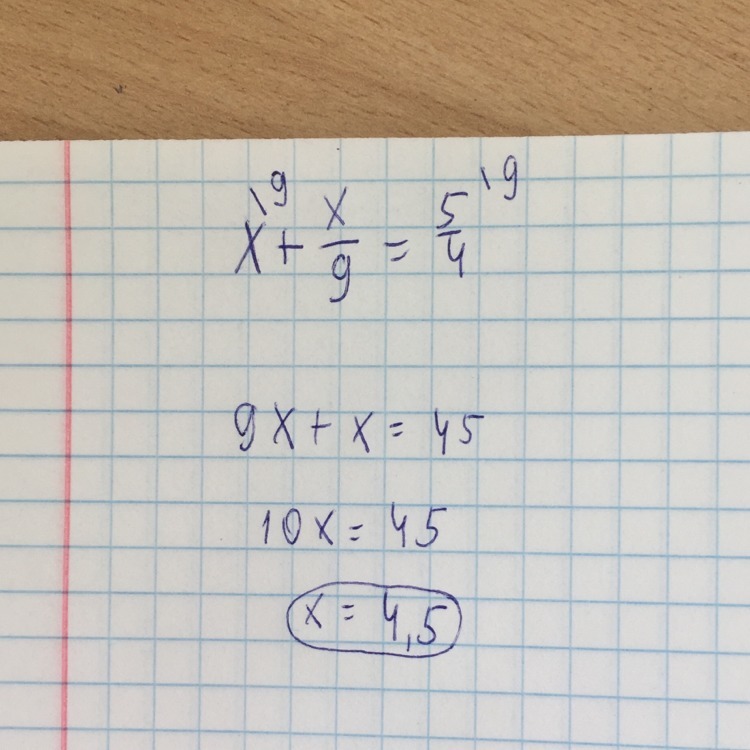 x\9 + x/9 = 5/4 \9
9x + x = 45
10x = 45
x = 4,5